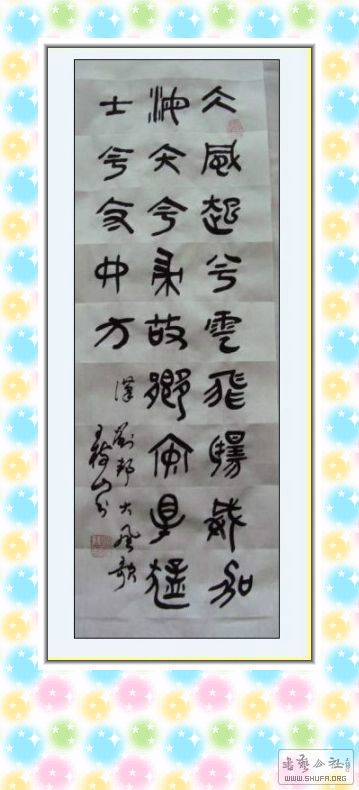 大風起兮雲飛揚威加
海内兮歸故鄉安得猛
士兮守四方
漢劉邦大風歌
書藝公社
WWW.SHUFA.ORG